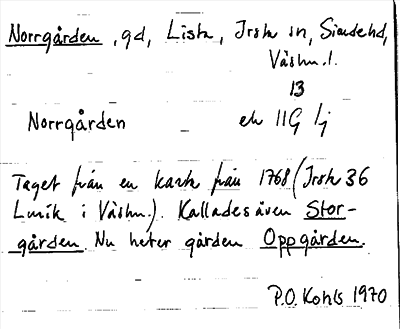 Norrgården, gd, Lista, Irsta sn, Siende hd,
Västm.l.
13
Norrgården ek 11G 1j
Taget från en karta från 1768 (Irsta 36
Lmfk i Västm.). Kallades även Stor-
gården. Nu heter gården Oppgården.
P.O. Kohls 1970